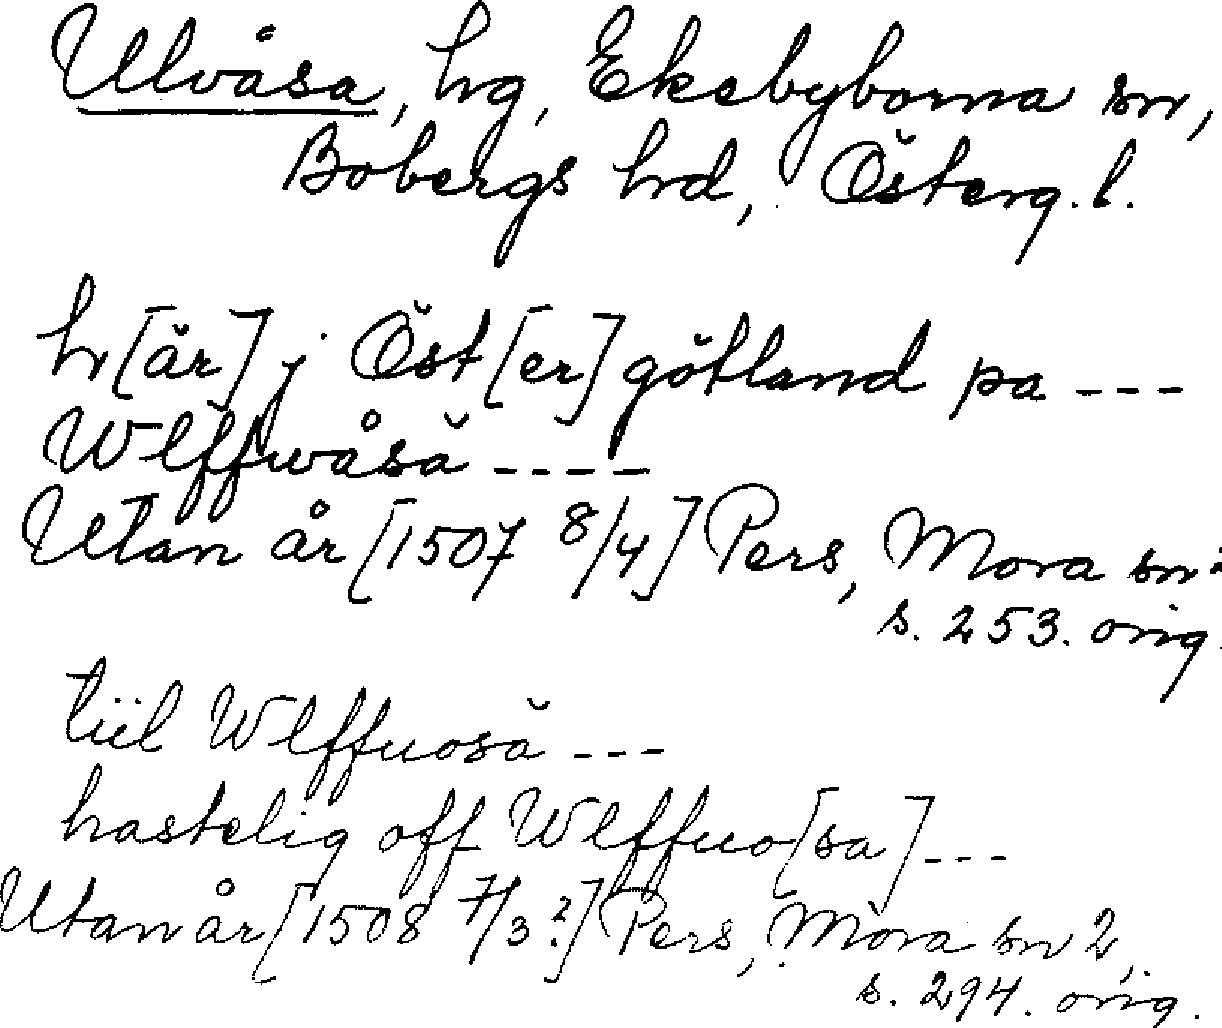 Ulvåsa, hg, Ekebyborna sn,
Bobergs hrd, Österg. l.
h[är] j Öst[er]götland pa ---
Wlffwåsä ----
Utan år [1507 8/4] Pers, Mora sn
s. 253. orig.
tiil Wlffuosä ---
hastelig off Wlffuo[sa]---
Utan år [1508 7/3?] Pers, Mora sn 2,
s. 294. orig.